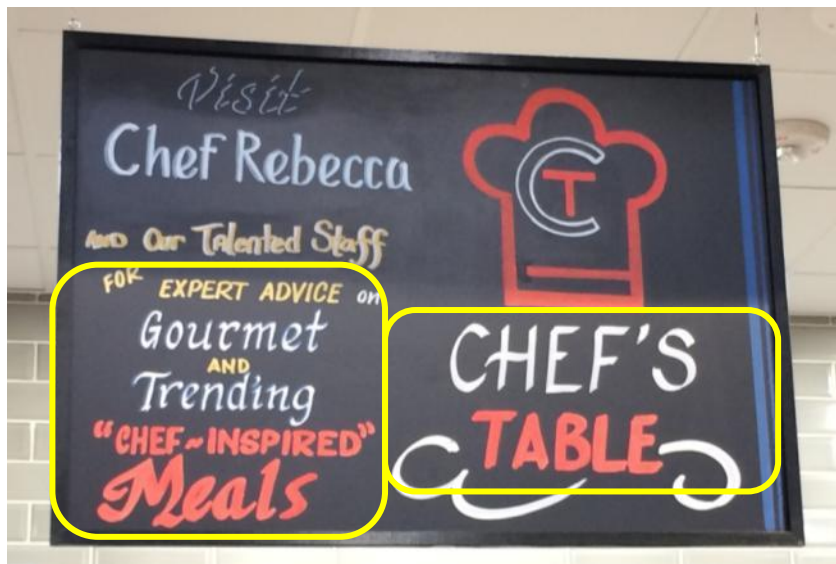 Visit
Chef Rebecca
AND Our Talented Staff
FOR EXPERT ADVICE on
Gourmet
AND
Trending
"CHEF~INSPIRED"
Meals
CT
CHEF'S
TABLE